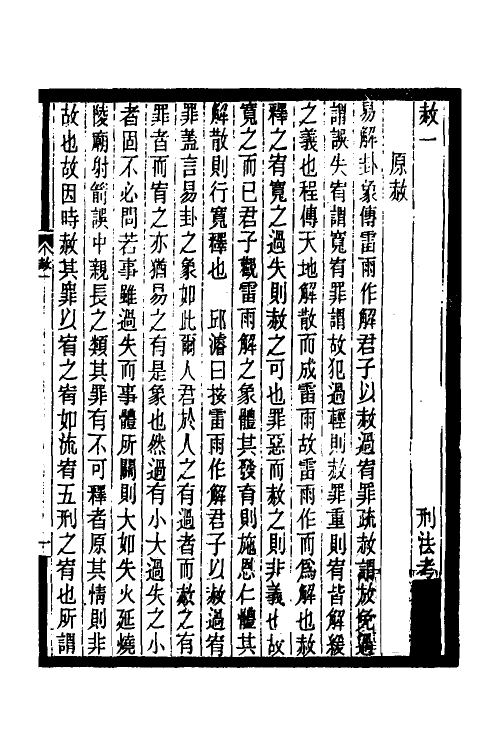 赦一
刑法考
原赦
易解卦象傳雷雨作解君子以赦過宥罪疏赦謂放免過
謂誤失宥謂寬宥罪謂故犯過輕則赦罪重則宥皆解緩
之義也程傳天地解散而成雷雨故雷雨作而為解也赦
釋之宥寬之過失則赦之可也罪惡而赦之則非義也故
寬之而已君子觀雷雨解之象體其發育則施恩仁體其
解散則行寬釋也　邱濬曰按雷雨作解君子以赦過宥
罪蓋言易卦之象如此爾人君於人之有過者而赦之有
罪者而宥之亦猶易之有是象也然過有小大過失之小
者固不必問若事雖過失而事體所關則大如失火延燒
陵廟射箭誤中親長之類其罪有不可釋者原其情則非
故也故因時赦其罪以宥之宥如流宥五刑之宥也所謂
赦一
一